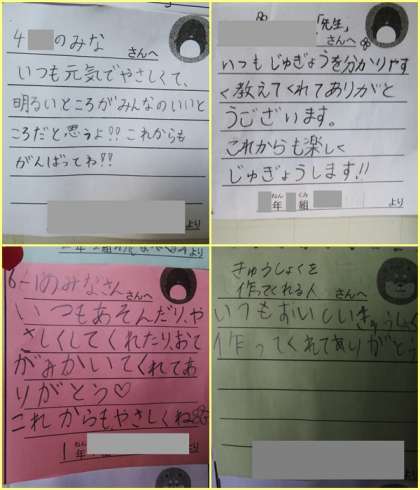 4 のみな
さんへ
いつも元気でやさしくて、
明るいところがみんなのいいと
ころだと思うよ!! これからも
がんばってね!!
より
「先生」
さんへ
いつもじゅぎょうを分かりやす
く教えてくれてありがと
うございます。
これからも楽しく
じゅぎょうします!!
年 組
ねん くみ
より
6-1のみなさん
さんへ
いつもあそんだり、や
さしくしてくれたり、おて
がみかいてくれてあ
りがとう♡
これからもやさしくね
1年
ねん
より
きゅうしょくを
作ってくれる人
さんへ
いつもおいしいきゅうしょく
作ってくれてありがとう
より